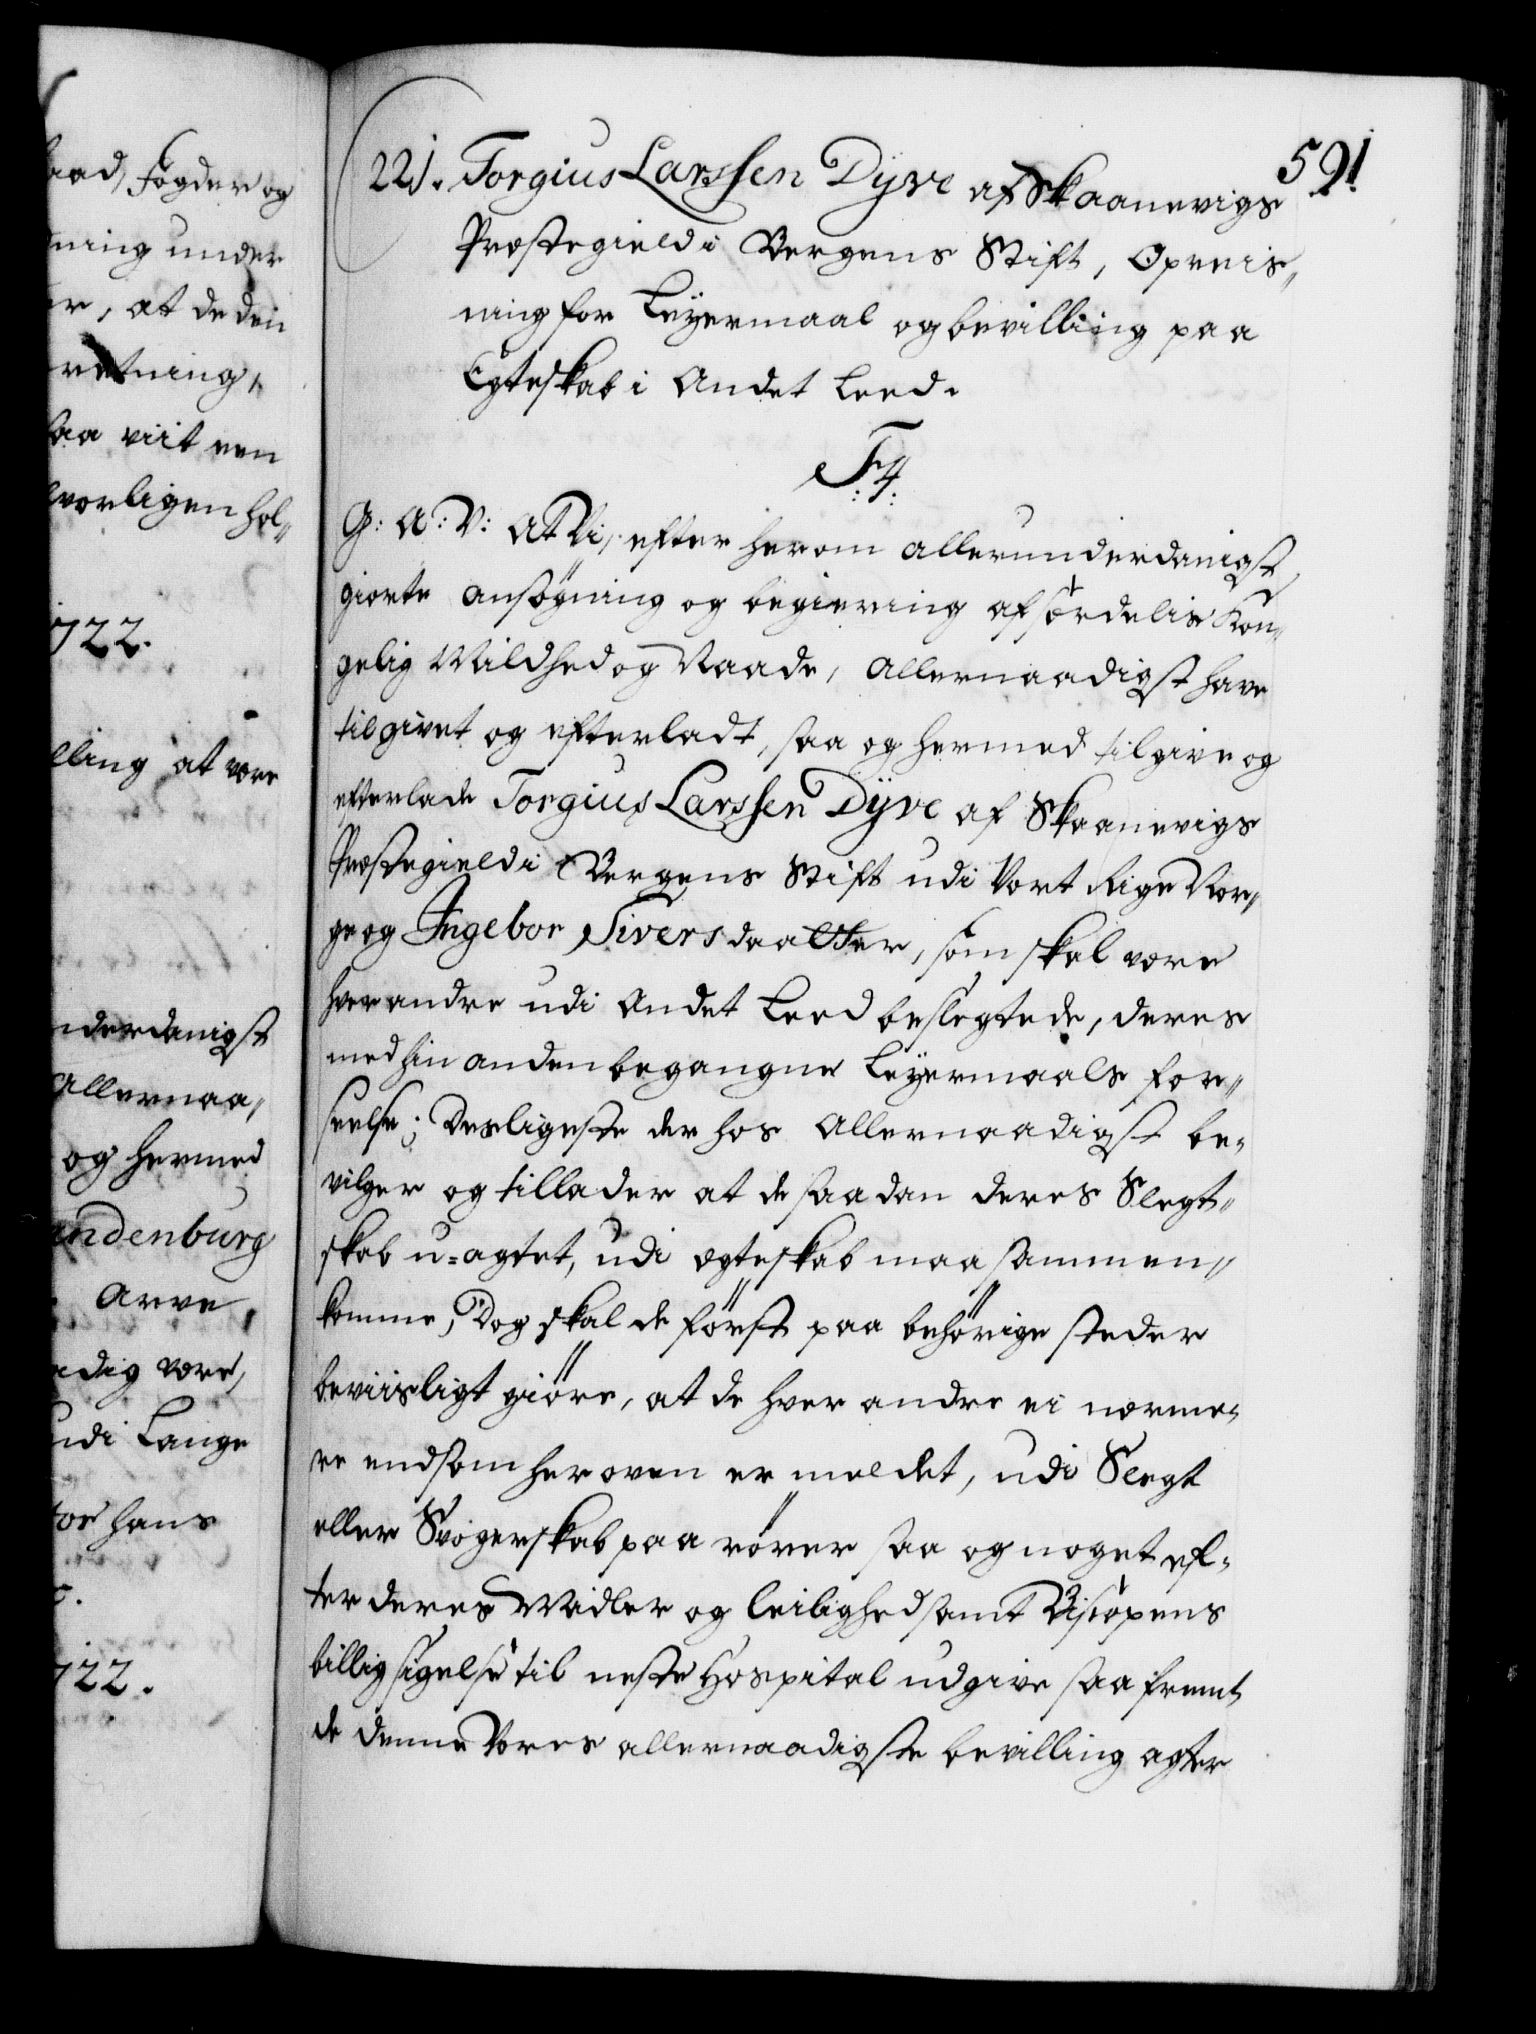 aad, Fogder og
ning under
er, at de den
retning,
saa viit een
lvorligen hol„
1722.
lling at være
nderdanigst
Allernaa„
og hermed
andenburg
Arve,
adig være,
udi Lange
for hans
1722.
591
221. Torgius Larssen Dyve af Skaanevigs
Præstegield i Bergens Stift, Opreis„
ning for Leyermaal og bevilling paa
Egteskab i Andet Leed.
F4.
G: A: V: At Vi, efter herom allerunderdanigst
giorte ansøgning og begiering af særdelis Kon„
gelig Mildhed og Naade, Allernaadigst have
tilgivet og efterladt, saa og hermed tilgive og
efterlade Torgius Larssen Dyve af Skaanevigs
Præstegield i Bergens Stift udi Vort Rige Nor„
ge og Ingebor Siversdaatter, som skal være
hverandre udi Andet Leed beslegtede, deres
med hinanden begangne Leyermaals for„
seelse; Desligeste der hos Allernaadigst be„
vilger og tillader at de saadan deres Slegt„
skab u=agtet, udi ægteskab maa sammen„
komme; Dog skal de først paa behørige steder
beviisligt giøre, at de hver andre ei nærme„
re end som her oven er meldet, udi Slegt
eller Svogerskab paa rører saa og noget ef„
ter deres Midler og leilighed samt Biscopens
billig sigelse til neste Hospital udgive saafremt
de denne Vores allernaadigste bevilling agter